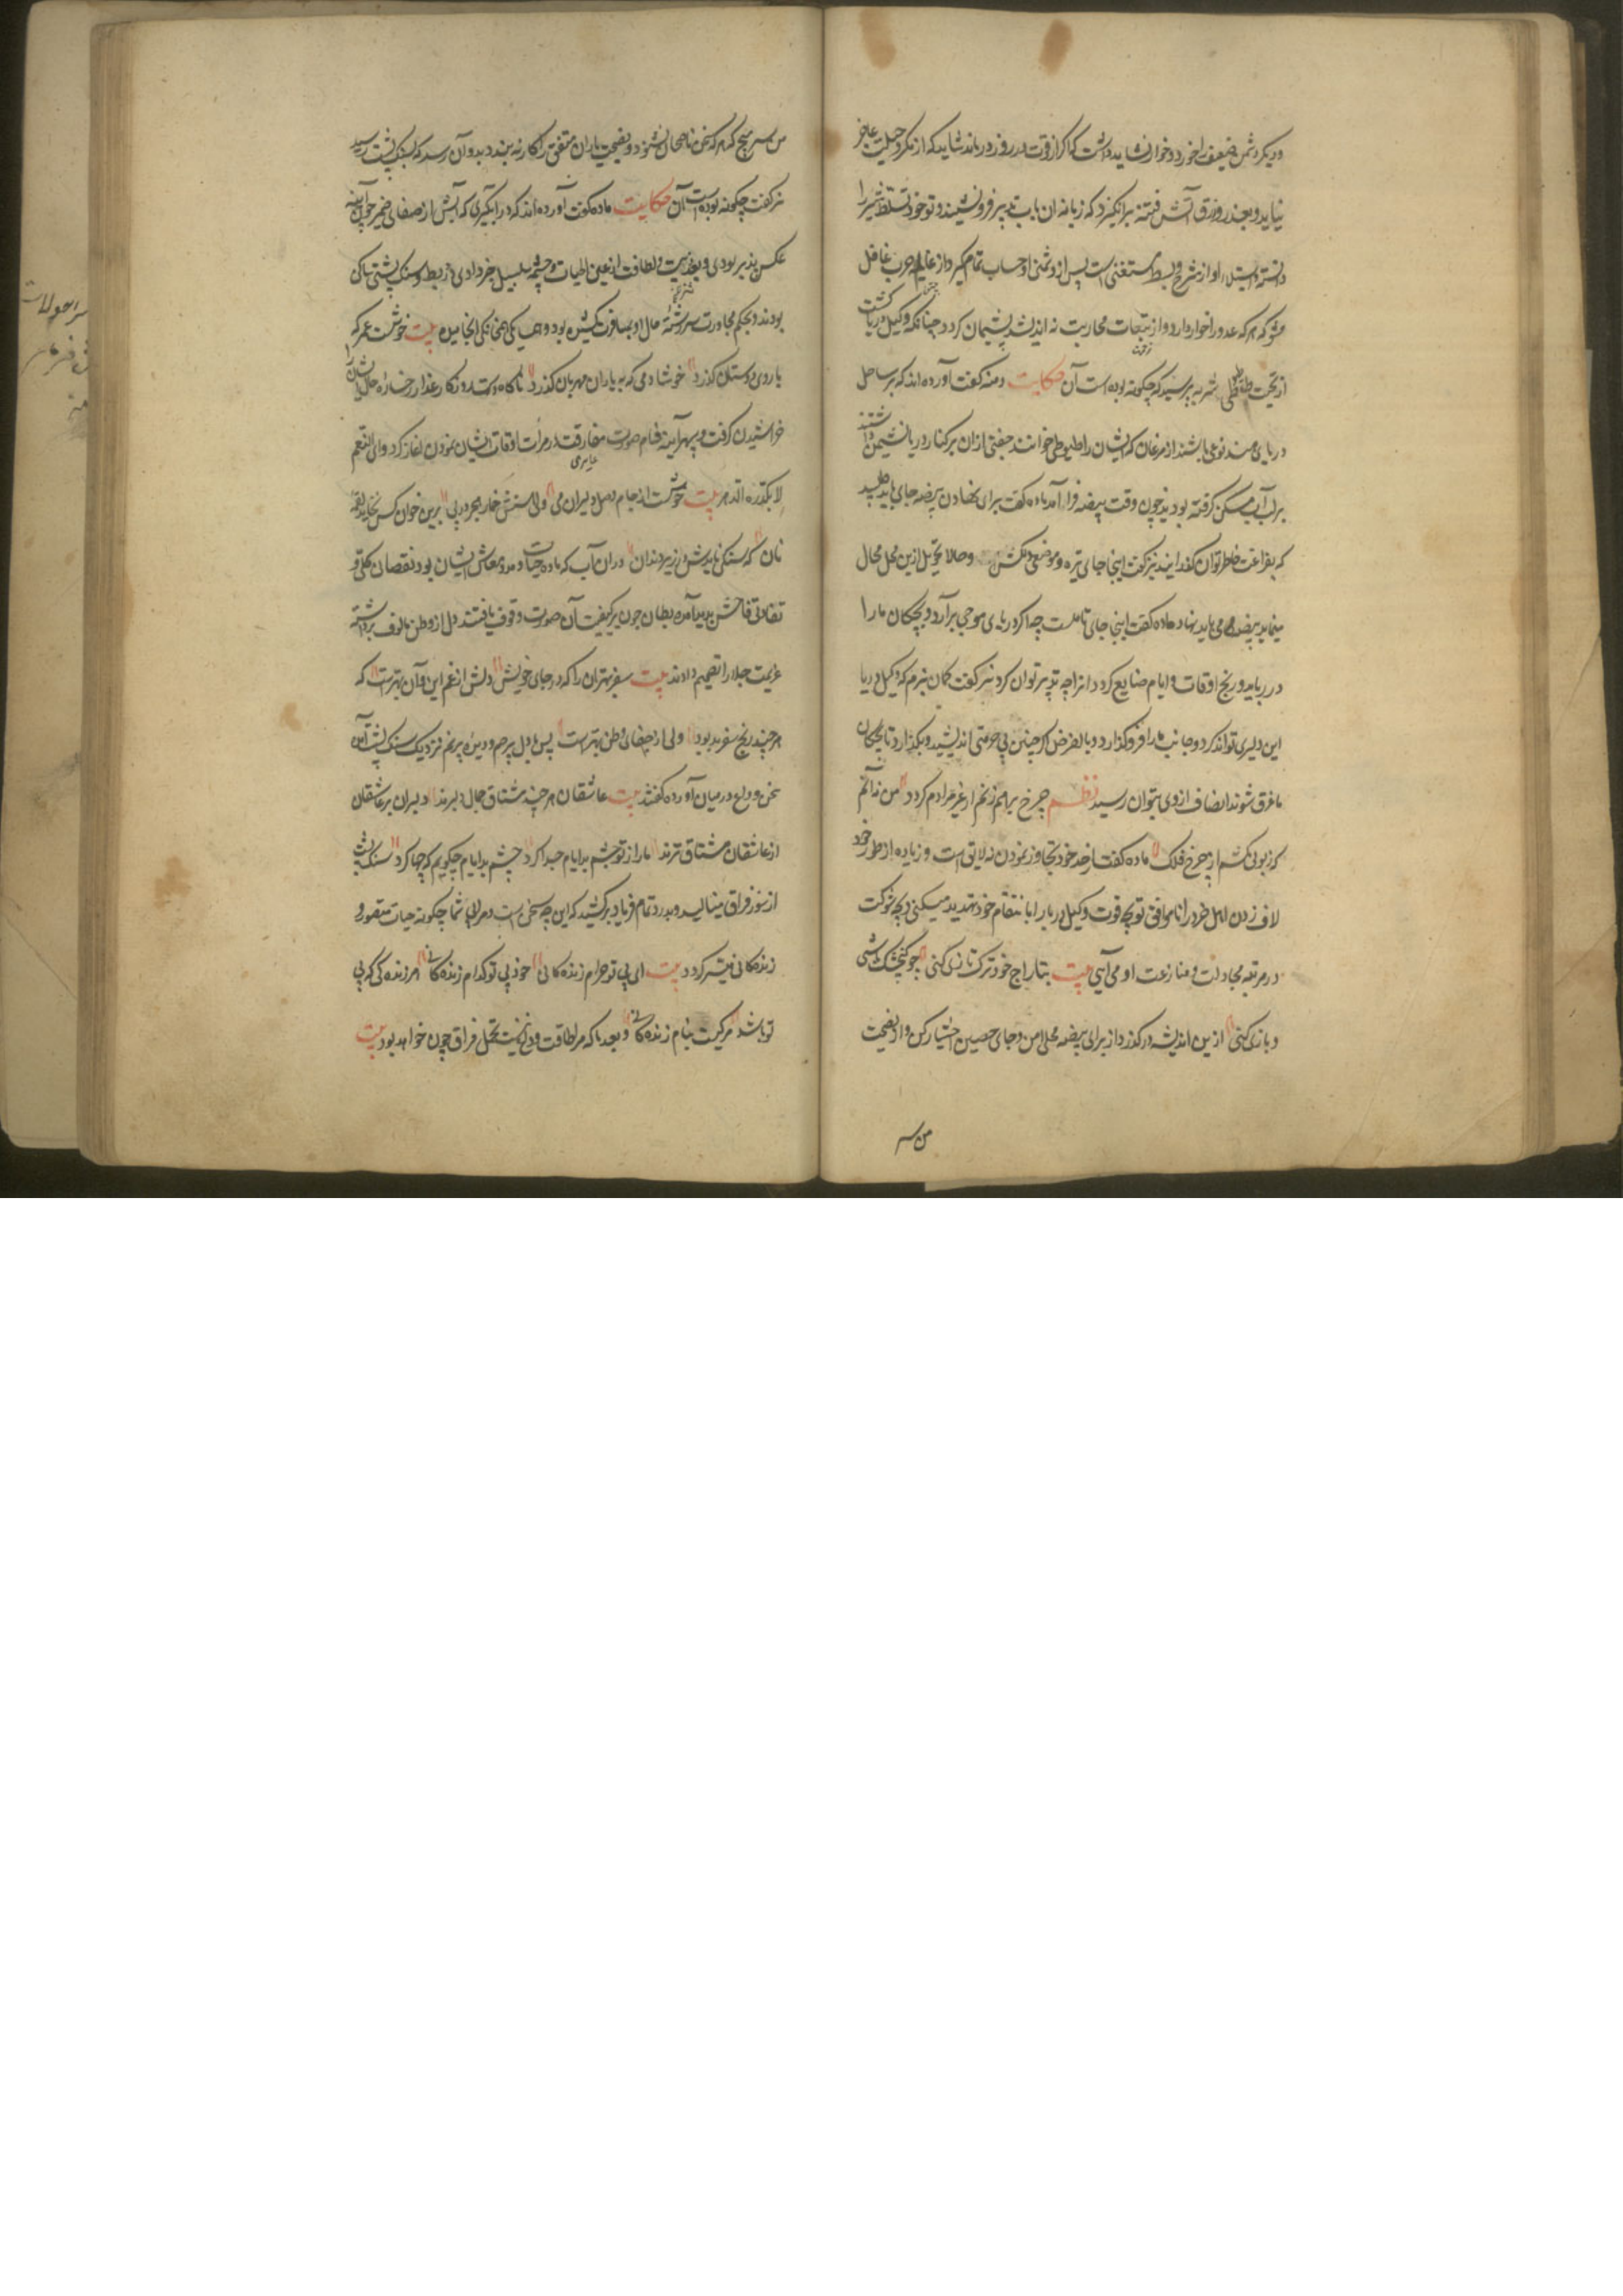 و دیکر دشمن ضعیف را خورد و خوار نشاید داشت که اکر از قوت و زور درماند شاید که از مکر و حیلت عاجز
نیاید و بغدر و زرق آتش فتنه برانکیزد که زبانه ان باب تدبیر فرو ننشیند و تو خود تسلط شیر را
دانسته و استیلاء او از شرح و بسط مستغنی است پس از دشمنی او حساب تمام کیر و از غایله حرب غافل
مشو که هر که عدو را خوار دارد و از تبعات محاربت نه اندیشد پشیمان کردد چنانکه وکیل دریا کشت
از تحقیر طیطوی شنزبه پرسید که چکونه بوده است آن حکایت دمنه کفت آورده اند که بر ساحل
دریای هند نوعی باشند از مرغان که ایشان را طیطوی خوانند جفتی ازان بر کنار دریا نشیمن داشتند
بر لب آب مسکن کرفته بودند چون وقت بیضه فراز آمد ماده کفت برای نهادن بیضه جای باید طلبید
که بفراغت خاطر توان کذرانید نر کفت اینجا جای نزه و موضعی دلکش و حالا تحویل ازین محل محال
مینماید بیضه می باید نهاد ماده کفت اینجا جای تاملست چه اکر دریای موجی برآرد و بچکان ما را
در رباید و رنج اوقات و ایام ضایع کردد انرا چه تدبیر توان کرد نر کفت کمان نبرم که وکیل دریا
این دلیری تواند کرد و جانب ما را فرو کذارد و بالفرض اکر چنین بی حرمتی اندیشد و بکذارد تا بچکان
ما غرق شوند انصاف از وی بتوان رسید نظم چرخ برهم زنم ار غیر مرادم کردد من نه آنم
که زبونی کشم از چرخ فلک ماده کفت از حد خود تجاوز نمودن نه لایق است و زیاده از طور خود
لاف زدن اهل خرد را ناموافق تو بچه قوت وکیل دریا را بانتقام خود تهدید میکنی و بچه شوکت
در مرتبه مجادلت و منازعت او می آیی بیت بتاراج خود ترکتازی کنی چو کنجشک باشی
و بازی کنی ازین اندیشه در کذر و از برای بیضه محلی امن و جای حصین اختیار کن و از نصیحت
من سر
من سر مپیچ که هر که سخن ناصحان نشنود و نصیحت یاران متفق را کار نه بندد بدو آن رسد که بسنک پشت رسید
نر کفت چکونه بوده است آن حکایت ماده کفت آورده اند که در آبکیری که آبش از صفای ضمیر چون آیینه
عکس پذیر بودی و بعذوبیت و لطافت از عین الحیات و چشمه سلسبیل خبر دادی دو بط و سنک پشتی ساکن
بودند و بحکم مجاورت سررشته حال
با روی دوستان کذرد خوشا دمی که به یاران مهربان کذرد ناکاه دست روزکار غدار رخساره حال ایشان را
خراشیدن کرفت و سپهر آینه فام صورت مفارقت در مرآت اوقات ایشان نمودن آغاز کرد و ای النعم
لا یکدره الدهر بیت خوشست از جام وصل دلبران می ولی هستش خمار هجر در پی برین خوان کس نخاید لقمه
نان که سنکی نایدش در زیر دندان دران آب که ماده حیات و مدد معاش ایشان بود نقصان کلی و
تفاوتی فاحش پدید آمده بطان چون بر کیفیت آن صورت وقوف یافتند دل از وطن مالوف برداشته
عزیمت جلا را تصمیم دادند بیت سفر بهتران را که در جای خویش دلش از غم این و آن بهترست که
هر چند رنج سفر بد بود ولی از جفای وطن بهترست پس با دل پر غم و دیده پر نم نزدیک سنک پشت آمدند
سخن وداع در میان آورده کفتند بیت عاشقان هر چند مشتاق جمال دلبرند دلبران بر عاشقان
از عاشقان مشتاق ترند ما را ز تو چشم بد ایام جدا کرد چشم بد ایام چکویم که چها کرد سنک پشت
از سوز فراق مینالید و بدرد تمام فریاد برکشید که این چه سخن است و مرا بی شما چکونه حیات متصور و
زندکانی میسر کردد بیت ای بی تو حرام زندکانی خود بی تو کدام زندکانی هر زندکی که بی
تو باشد مرکیست بنام زندکانی و بعد ما که مرا طاقت وداع نیست تحمل فراق چون خواهد بود بیت